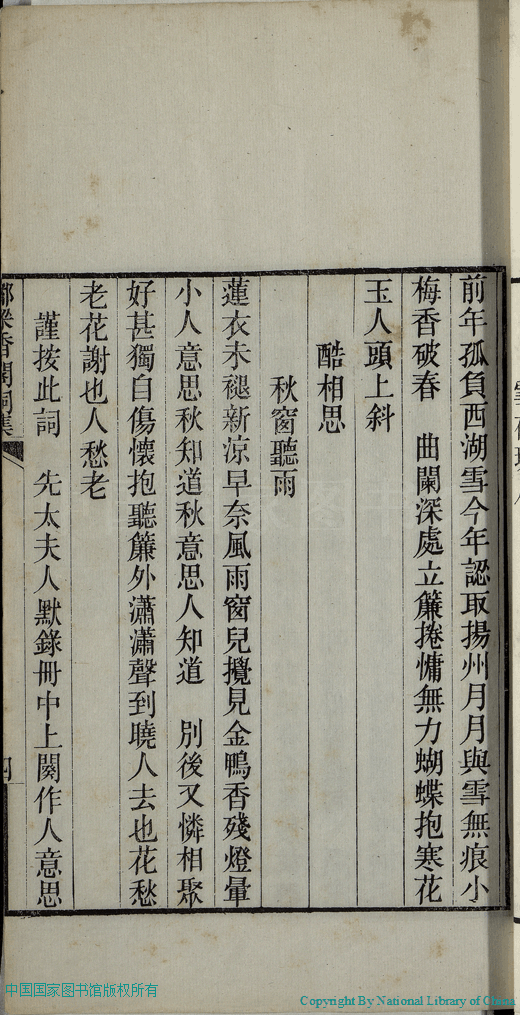 前年孤負西湖雪今年認取揚州月月與雪無痕小
梅香破春　曲闌深處立簾捲慵無力蝴蝶抱寒花
玉人頭上斜
酷相思
秋窗聽雨
蓮衣未褪新涼早奈風雨窗兒攪見金鴨香殘燈暈
小人意思秋知道秋意思人知道　別後又憐相聚
好甚獨自傷懷抱聽簾外瀟瀟聲到曉人去也花愁
老花謝也人愁老
謹按此詞　先太夫人默錄冊中上闋作人意思
梁香閣詞集
四
中国国家图书馆版权所有
Copyright By National Library of China